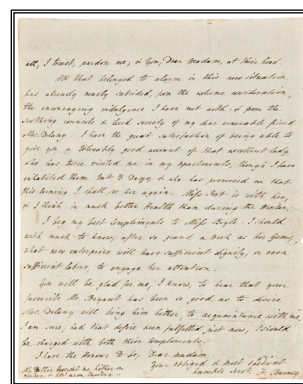 all, I trust, pardon me; & you, Dear Madam, at their head.
All that belonged to alarm in this new situation
has already nearly subsided, from the welcome consideration,
the encouraging indulgence I have met with: & from the
soothing counsels & kind society of my dear venerable friend
Mrs. Delany. I have the great satisfaction of being able to
give you a tolerably good account of that excellent lady,
who has twice visited me in my apartments, though I have
inhabited them but 3 Days; & she has promised me that
this Evening I shall see her again. Miss Port is with her,
& I think in much better Health than during the Winter.
I beg my best Compliments to Miss I should
wish much to know, after so grand a Work as her
what new enterprise will have sufficient dignity, or even
sufficient labour, to engage her attention.
You will be glad for me, I know, to hear that your
favourite Mr. Bryant has been so good as to desire
Mrs. Delany will bring him hither, to acquaintance with me.
I am sure, had that desire been fulfilled, just now, I should
be charged with both their Compliments.
I have the Honour to be, Dear madam
Your obliged & most obedient
humble Servt. F. Burney.
My Father brought me hither on